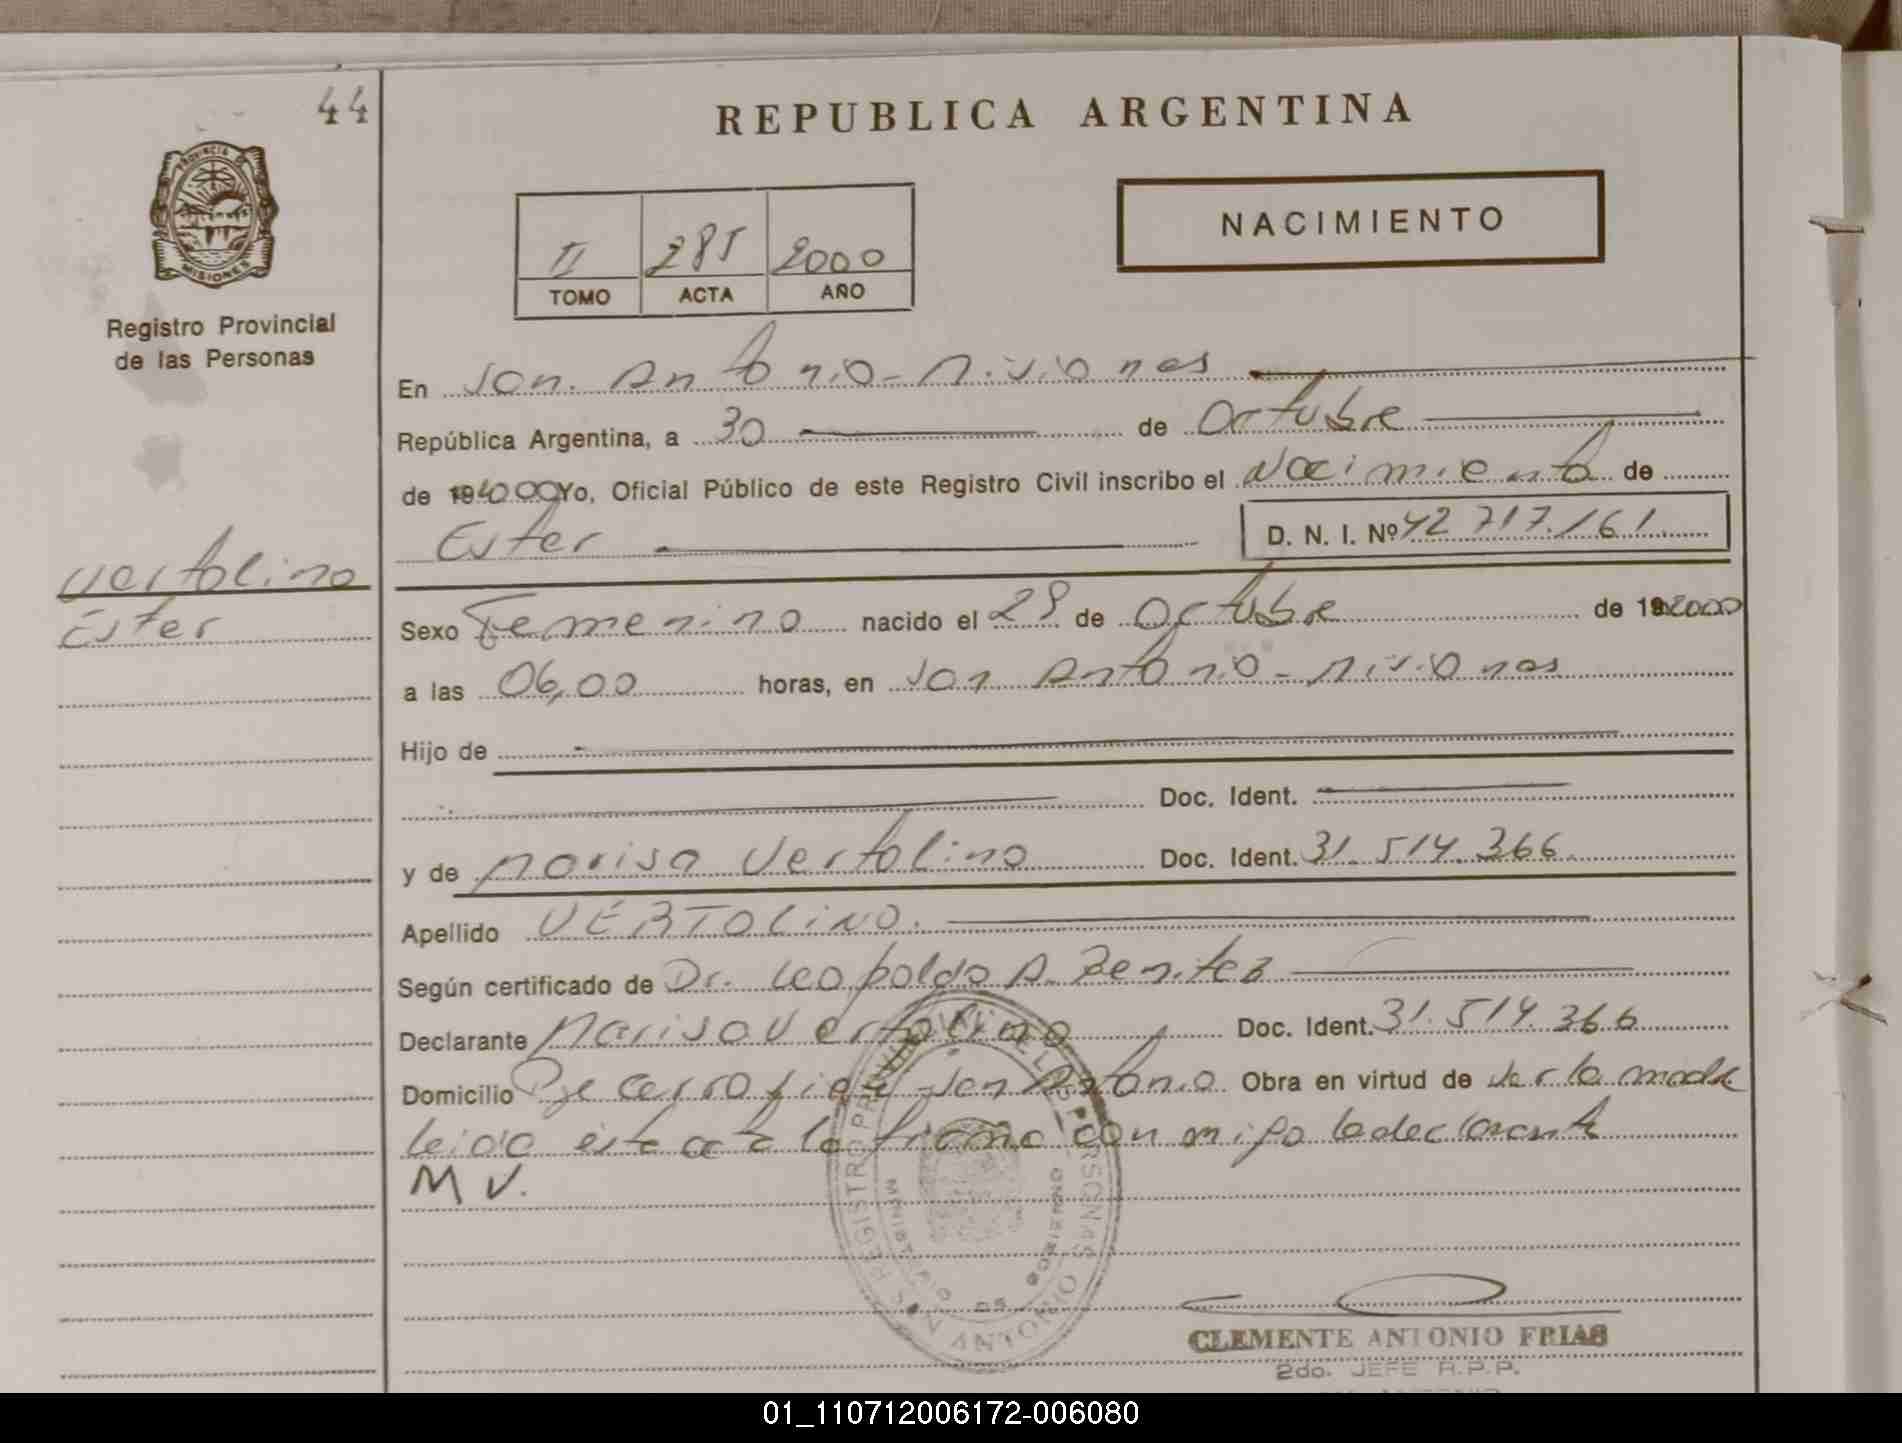 44
REPUBLICA ARGENTINA
PROVINCIA DE
MISIONES
Registro Provincial
de las Personas
II 285 2000
TOMO ACTA AÑO
NACIMIENTO
En San Antonio - Misiones
República Argentina, a 30 de Octubre
de 2000 Yo, Oficial Público de este Registro Civil inscribo el Nacimiento de
Ester D. N. I. Nº 42 717.161
Vertolino
Ester
Sexo Femenino nacido el 29 de Octubre de 2000
a las 06,00 horas, en San Antonio - Misiones
Hijo de
Doc. Ident.
y de Marisa Vertolino Doc. Ident. 31.514.366
Apellido VERTOLINO.
Según certificado de Dr. Leopoldo A. Benitez
Declarante Marisa Vertolino Doc. Ident. 31.514.366
Domicilio San Antonio Obra en virtud de ser la madre
leida esta acta la firma con migo la declarante
M V.
REGISTRO PROVINCIAL DE LAS PERSONAS
MINISTERIO DE GOBIERNO
SAN ANTONIO
CLEMENTE ANTONIO FRIAS
2do. JEFE R.P.P.
01_110712006172-006080